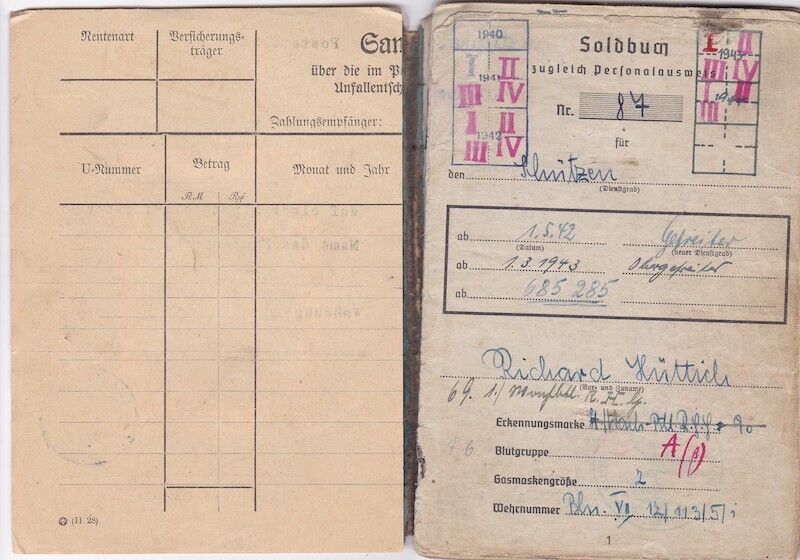 Rentenart
Versicherungs-
träger
über die im
Unfallentsch
Zahlungsempfänger:
U-Nummer
Betrag
Monat und Jahr
RM
Rpf
(11. 28)
1940
I II
1941
III IV
I II
1942
III IV
Soldbuch
zugleich Personalausweis
Nr. 87
für
den Schützen
(Dienstgrad)
I II
1943
III IV
I II
1944
III
ab 1.5.42 Gefreiter
(Datum) (neuer Dienstgrad)
ab 1.3.1943 Obergefreiter
ab 685 285
Richard Hüttich
(Vor- und Zuname)
69. 1./
Erkennungsmarke
Blutgruppe A (β)
Gasmaskengröße 2
Wehrnummer Bln. VII 12/113/5/1
1